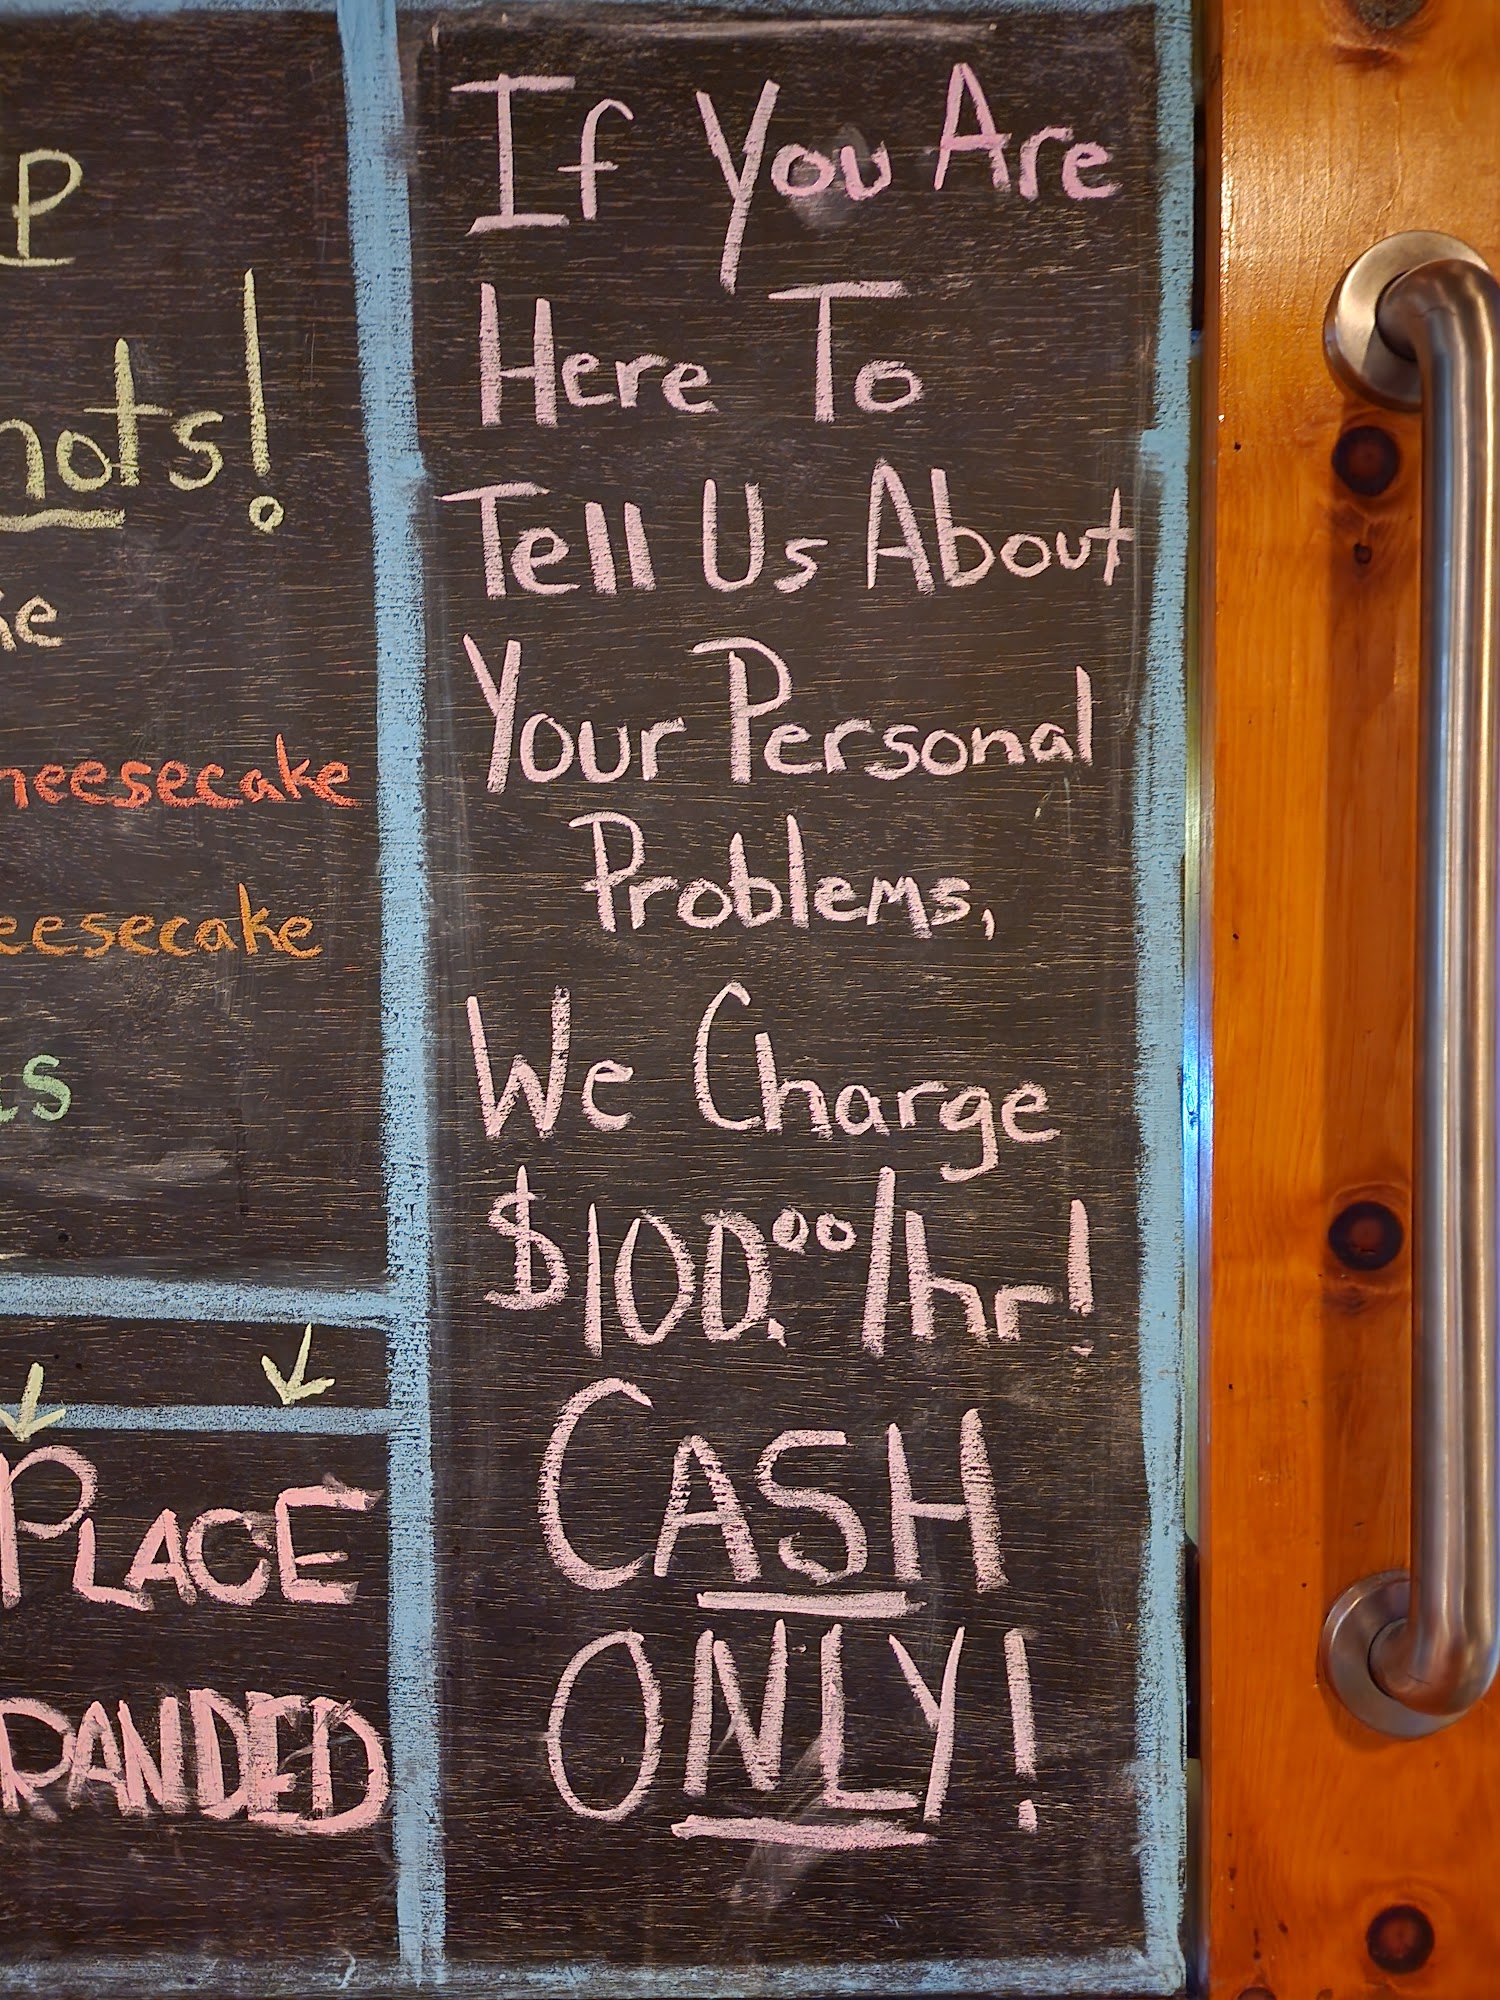 If You Are
Here To
Tell Us About
Your Personal
Problems,
We Charge
$100.00/hr!
CASH
ONLY!
P
ots!
eesecake
eesecake
PLACE
RANDED